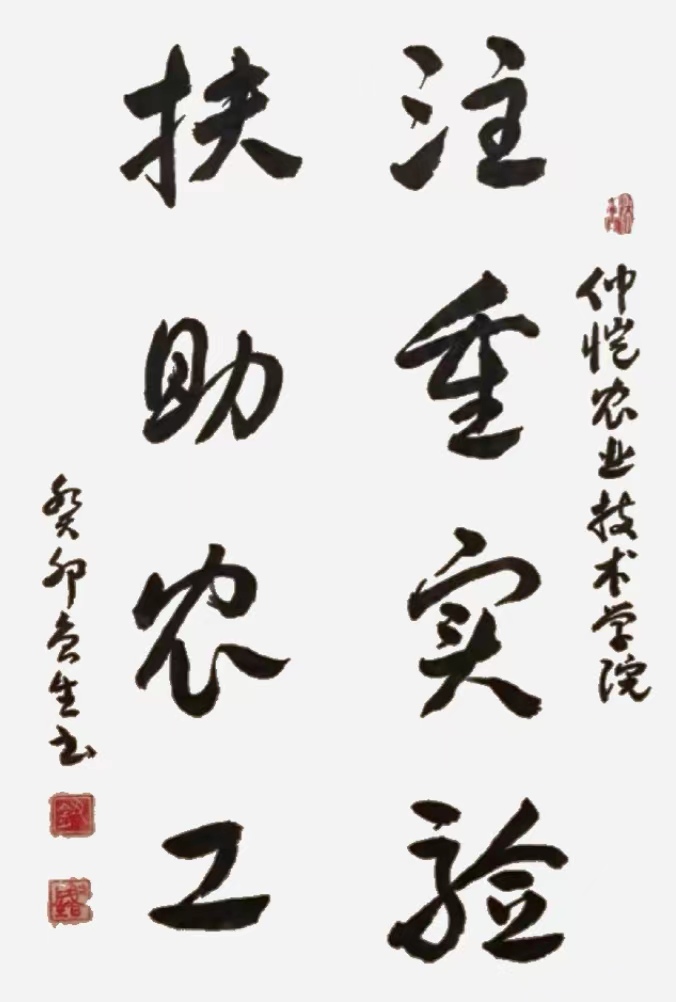 仲恺农业技术学院
注重实验
扶助农工
癸卯贪生书